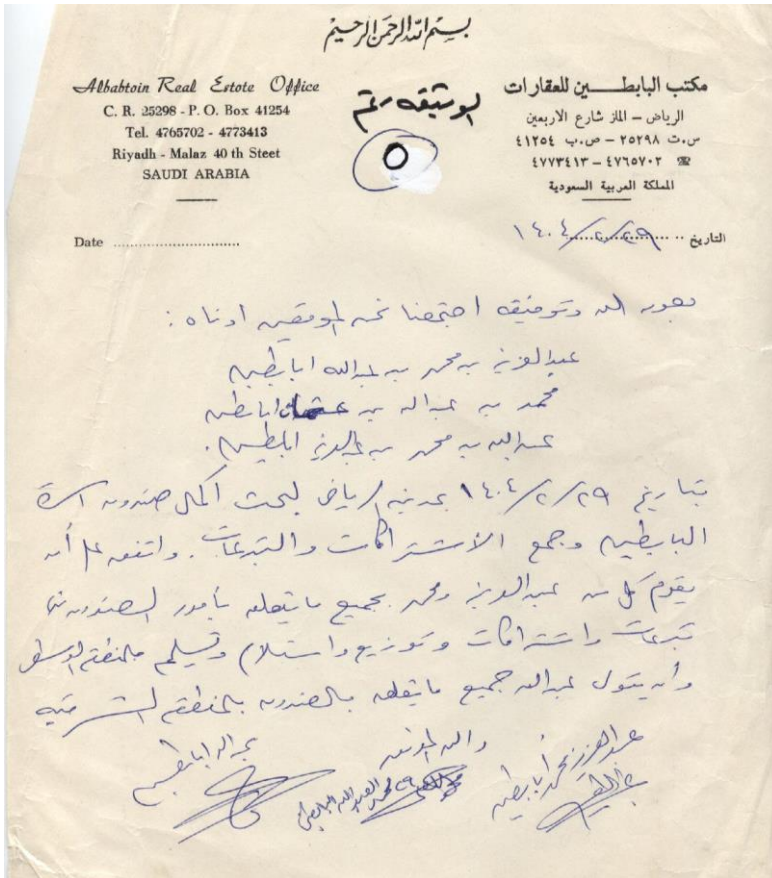 بسم الله الرحمن الرحيم
Albabtoin Real Estote Office
C. R. 25298 - P. O. Box 41254
Tel. 4765702 - 4773413
Riyadh - Malaz 40 th Steet
SAUDI ARABIA
الوثيقه رقم
٥
مكتب البابطــين للعقارات
الرياض – الملز شارع الاربعين
س.ت ٢٥٢٩٨ – ص.ب ٤١٢٥٤
☎ ٤٧٦٥٧٠٢ – ٤٧٧٣٤١٣
المملكة العربية السعودية
Date ..............................
التاريخ ٢٩/٢/١٤٠٤
بعون الله وتوفيقه اجتمعنا نحن الموقعين ادناه :
عبدالعزيز بن محمد بن عبدالله ابابطين
محمد بن عبدالله بن عثمان ابابطين
عبدالله بن محمد بن عبدالعزيز ابابطين .
بتاريخ ٢٩/٢/١٤٠٤ بمدينة الرياض لبحث اكمال صندوق اسرة
البابطين وجمع الاشتراكات والتبرعات . واتفق على أن
يقوم كل من عبدالعزيز ومحمد بجميع ما يتعلق بأمور الصندوق من
تبرعات واشتراكات وتوزيع واستلام وتسليم بالمنطقه الوسطى
وأن يتولى عبدالله جميع ما يتعلق بالصندوق بالمنطقه الشرقيه
والله الموفق
عبدالعزيز محمد أبابطين
محمد العبدالله البابطين
عبدالله ابابطين